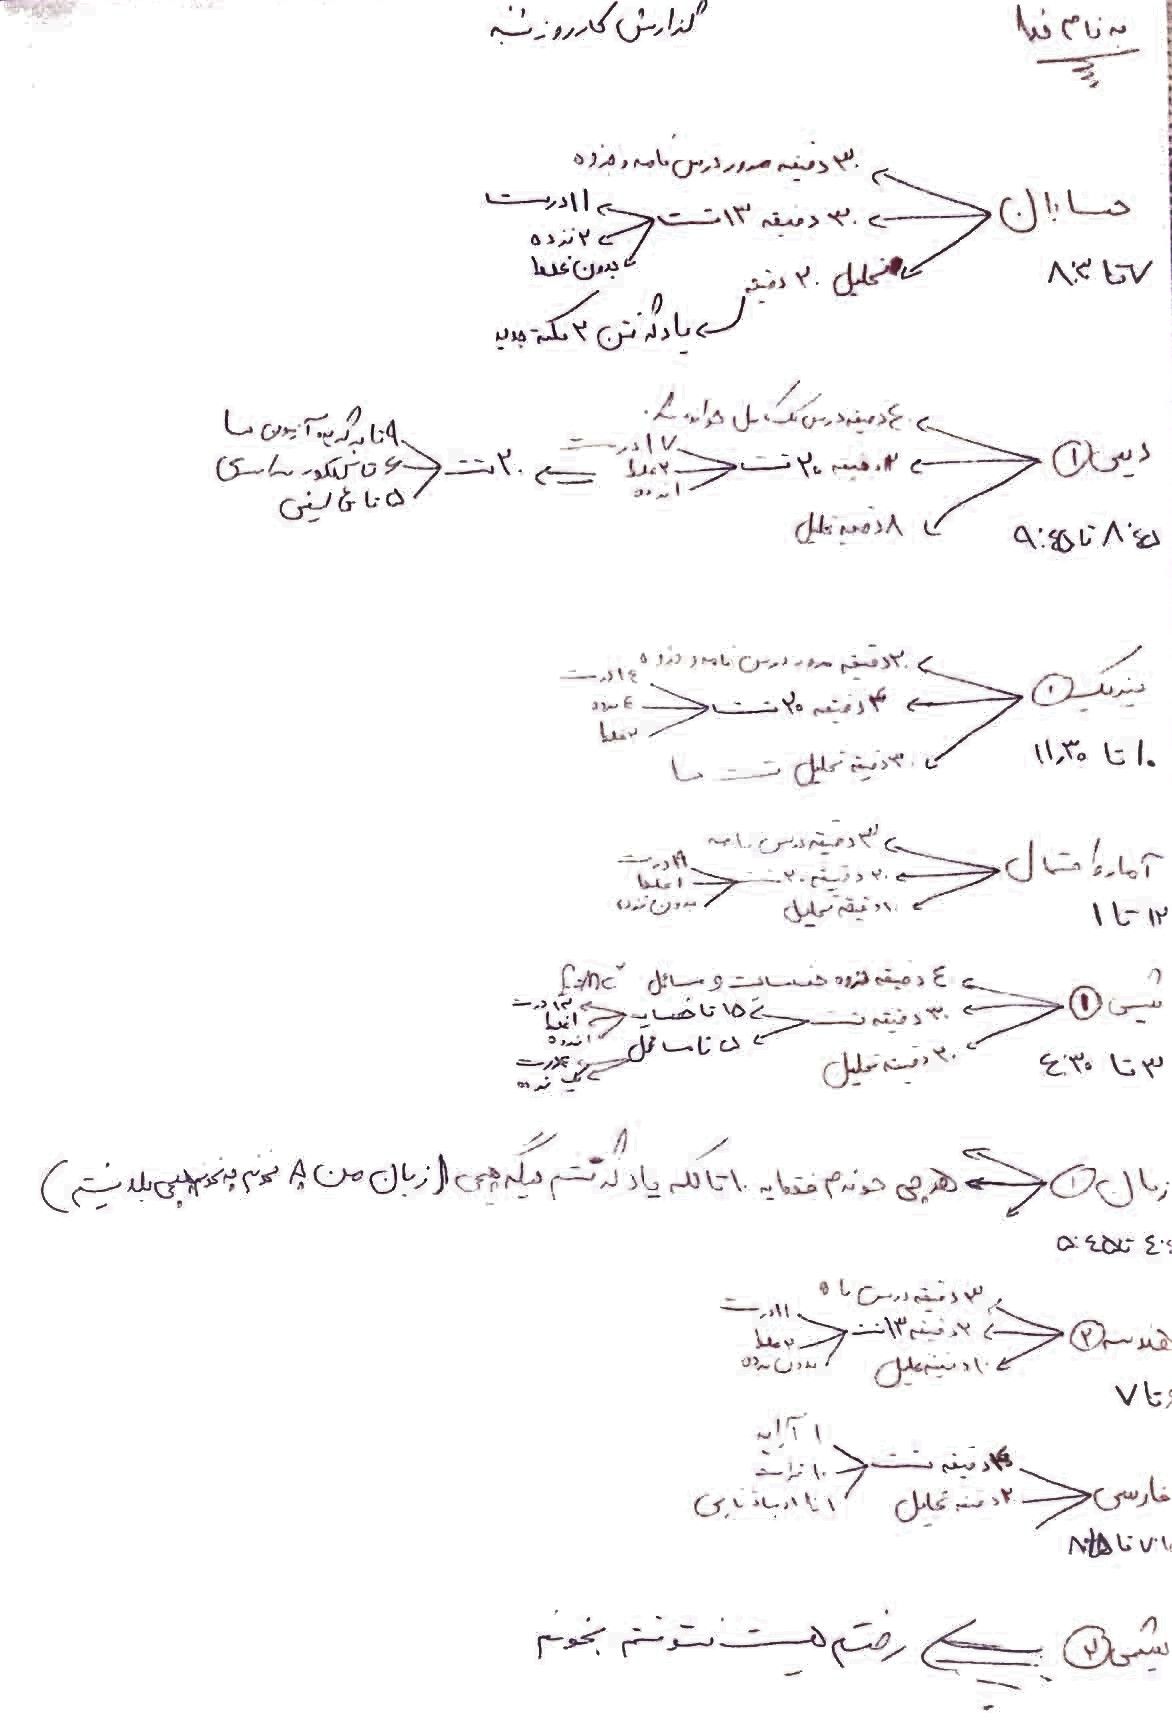 به نام خدا
گزارش کار روز شنبه
حسابان
۷ تا ۸:۳۰
۳۰ دقیقه مرور درس نامه و جزوه
۳۰ دقیقه ۱۳ تست
۱۱ درست
۲ نزده
بدون غلط
تحلیل ۳۰ دقیقه
یاد گرفتن ۳ نکته جدید
دینی ①
۸:۴۵ تا ۹:۴۵
۴۰ دقیقه درس یک کامل خوانده شد
۱۲ دقیقه ۲۰ تست
۱۷ درست
۲ غلط
۱ نزده
۲۰ تست
۹ تا برگزیده آزمون ها
۶ تا کنکور سراسری
۵ تا تالیفی
۸ دقیقه تحلیل
فیزیک ①
۱۰ تا ۱۱:۳۰
۳۰ دقیقه مرور درس نامه و جزوه
۳۰ دقیقه ۲۰ تست
۱۴ درست
۴ نزده
۲ غلط
۳۰ دقیقه تحلیل تست ها
آمار و احتمال
۱۲ تا ۱
۳۰ دقیقه درس نامه
۲۰ دقیقه ۲۰ تست
۱۹ درست
۱ غلط
بدون نزده
۱۰ دقیقه تحلیل
شیمی ①
۳ تا ۴:۳۰
۴۰ دقیقه جزوه حفظیات و مسائل E=mc²
۳۰ دقیقه تست
۱۵ تا حفظیات
۱۳ درست
۱ غلط
۱ نزده
۵ تا مسائل
۴ درست
یک نزده
۲۰ دقیقه تحلیل
زبان ①
هر چی خوندم فقط یه ۱۰ تا کلمه یاد گرفتم دیگه هیچی (زبان من چه بخونم چه نخونم هیچی بلد نیستم)
تا ۵:۴۵
هندسه ②
تا ۷
۳۰ دقیقه درس نامه
۲۰ دقیقه ۱۳ تست
۱۱ درست
۲ غلط
بدون نزده
۱۰ دقیقه تحلیل
فارسی
دقیقه تست
۱۰ آرایه
۱۰ قرابت
۱۰ تا زبان فارسی
۲۰ دقیقه تحلیل
شیمی ②
رفتم هیئت نتونستم بخونم